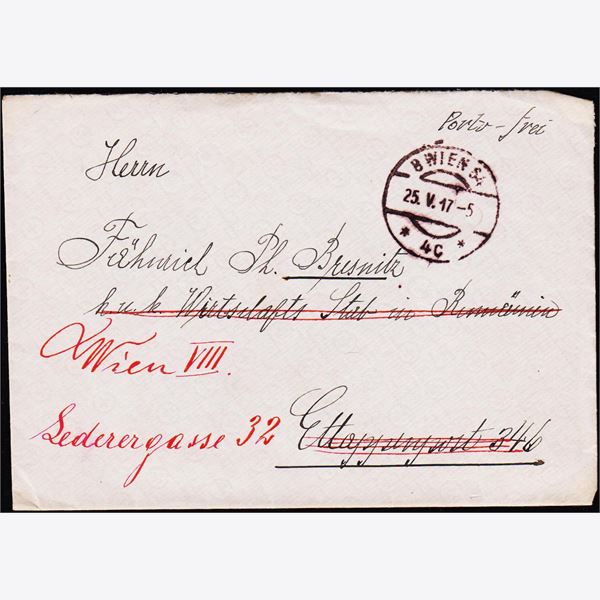 Porto-frei
8 WIEN 54
25. V. 17-5
* 4C *
Herrn
Fähnrich Ph. Bresnitz
k. u. k. Wirtschafts Stab in Rumänien
Wien VIII.
Lederergasse 32 Ettappenpost 346